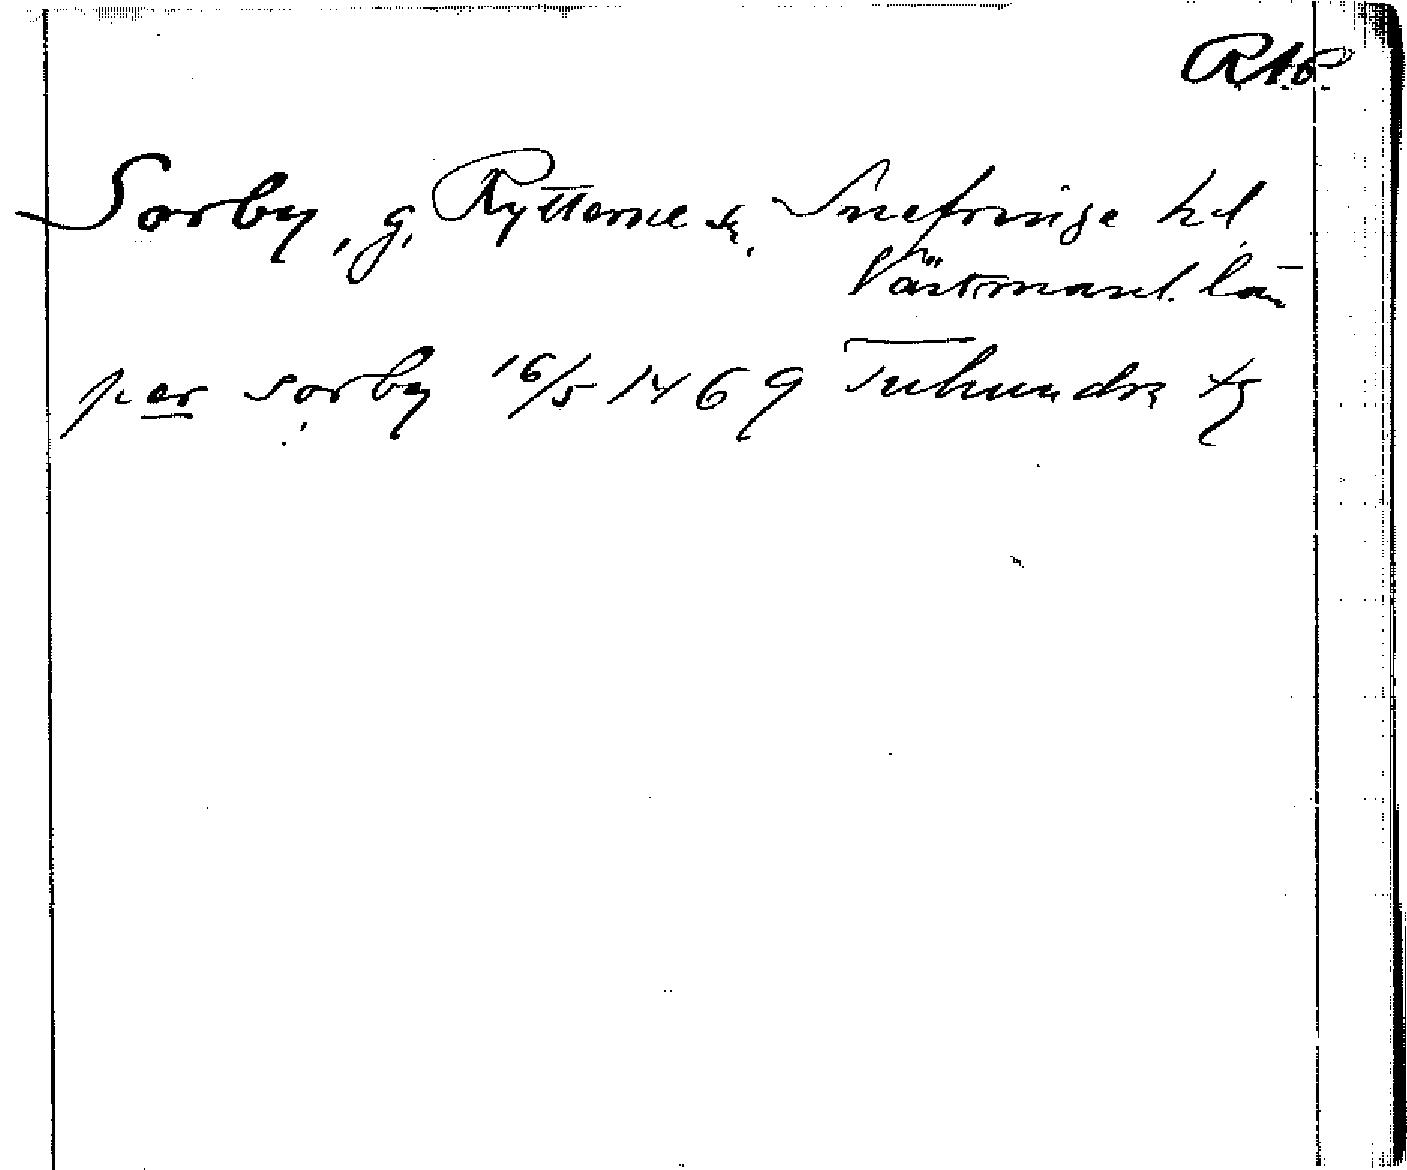 R.A.P.
Sörby, g, Rytterne sn, Snefringe hd,
Västmanl. län
per sörby 16/5 1469 Tuhundra tg